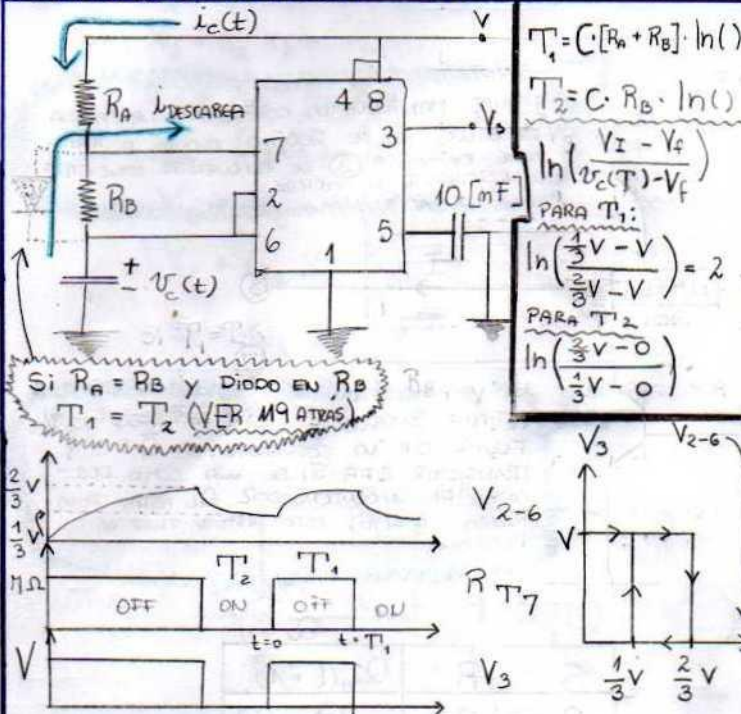 i_c(t)
V
R_A
i DESCARGA
4 8
3
V_3
7
R_B
2
6
1
5
10 [nF]
+
- v_c(t)
Si R_A = R_B y DIODO EN R_B
T_1 = T_2 (VER 119 ATRAS)
T_1 = C·[R_A + R_B]·ln()
T_2 = C·R_B·ln()
ln(VI - V_f / v_c(T) - V_f)
PARA T_1:
ln(1/3 V - V / 2/3 V - V) = 2
PARA T_2
ln(2/3 V - 0 / 1/3 V - 0)
2/3 V
1/3 V
V_2-6
Ω
OFF
T_2
ON
T_1
OFF
ON
R T_7
t=0
t=T_1
V
V_3
V_3
V_2-6
V
1/3 V
2/3 V